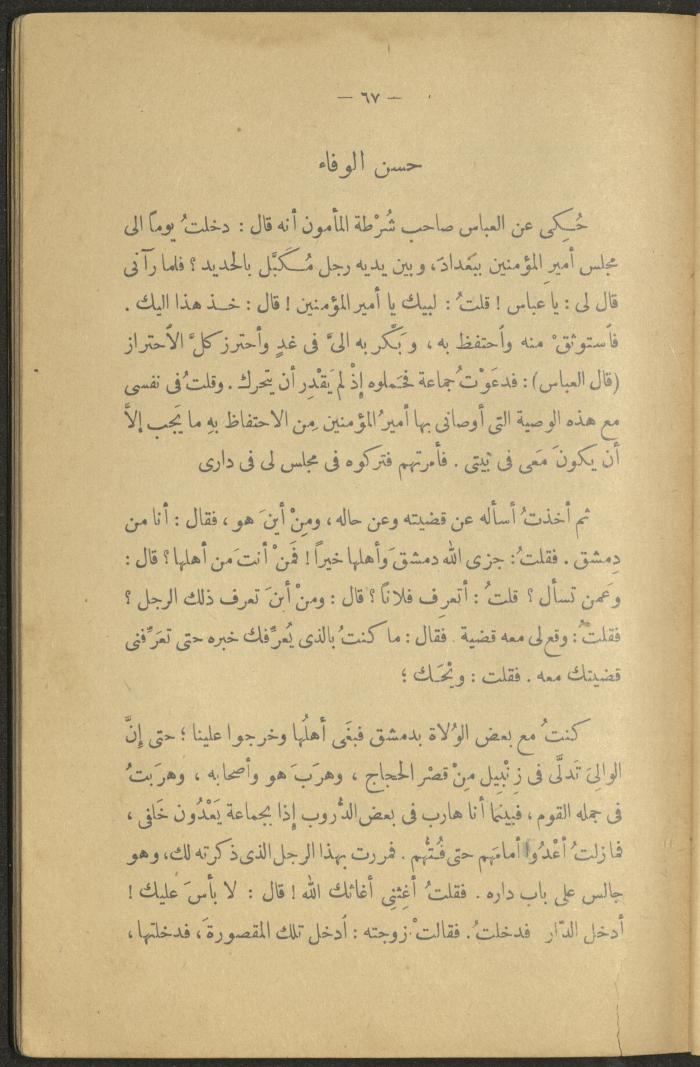 — ٦٧ —
حسن الوفاء
حُكِى عن العباس صاحب شُرْطة المأمون أنه قال : دخلتُ يوماً الى
مجلس أمير المؤمنين ببَغدادَ ، وبين يديه رجل مُكَبَّل بالحديد ؟ فلما رآنى
قال لى : يا عباس ! قلتُ : لبيك يا أمير المؤمنين ! قال : خذ هذا اليك .
فاستوثقْ منه وأحتفظ به ، وبَكّر به الىَّ فى غدٍ وأحترز كلَّ الأحتراز
(قال العباس) : فدعَوْتُ جماعة فحَملوه إذْ لم يَقْدِر أن يتحرك . وقلتُ فى نفسى
مع هذه الوصية التى أوصانى بها أميرُ المؤمنين مِن الاحتفاظ بهِ ما يَجب إلاَّ
أن يكونَ مَعى فى بيتى . فأمرتهم فتركوه فى مجلس لى فى دارى
ثم أخذتُ أسأله عن قضيته وعن حاله ، ومِنْ أينَ هو ، فقال : أنا من
دِمشق . فقلتُ : جزى الله دمشقَ وأهلها خيراً ! فمَنْ أنتَ من أهلها ؟ قال :
وعَمن تسأل ؟ قلتُ : أتعرِف فلاناً ؟ قال : ومنْ أينَ تعرف ذلك الرجل ؟
فقلتُ : وقع لى معه قضية . فقال : ما كنتُ بالذى يُعرِّفك خبره حتى تعرَّفنى
قضيتك معه . فقلت : ويْحَك ؛
كنتُ مع بعض الوُلاة بدمشق فبغَى أهلُها وخرجوا علينا ؛ حتى إنَّ
الوالىَ تَدلَّى فى زِنْبِيل مِنْ قصْر الحجاج ، وهرَبَ هو وأصحابه ، وهرَبتُ
فى جمله القوم ، فبينَما أنا هارب فى بعض الدُّروب إذا بجماعة يَعْدُون خَلفى ،
فما زلتُ أعْدُوا أمامَهم حتى فُتُّهم . فمررت بهذا الرجل الذى ذكرته لك، وهو
جالس على باب داره . فقلتُ أغِثنِى أغاثك الله ! قال : لا بأسَ عليك !
أدخل الدّار فدخلتُ . فقالتْ زوجته : أدخل تلك المقصورةَ ، فدخلتها ،